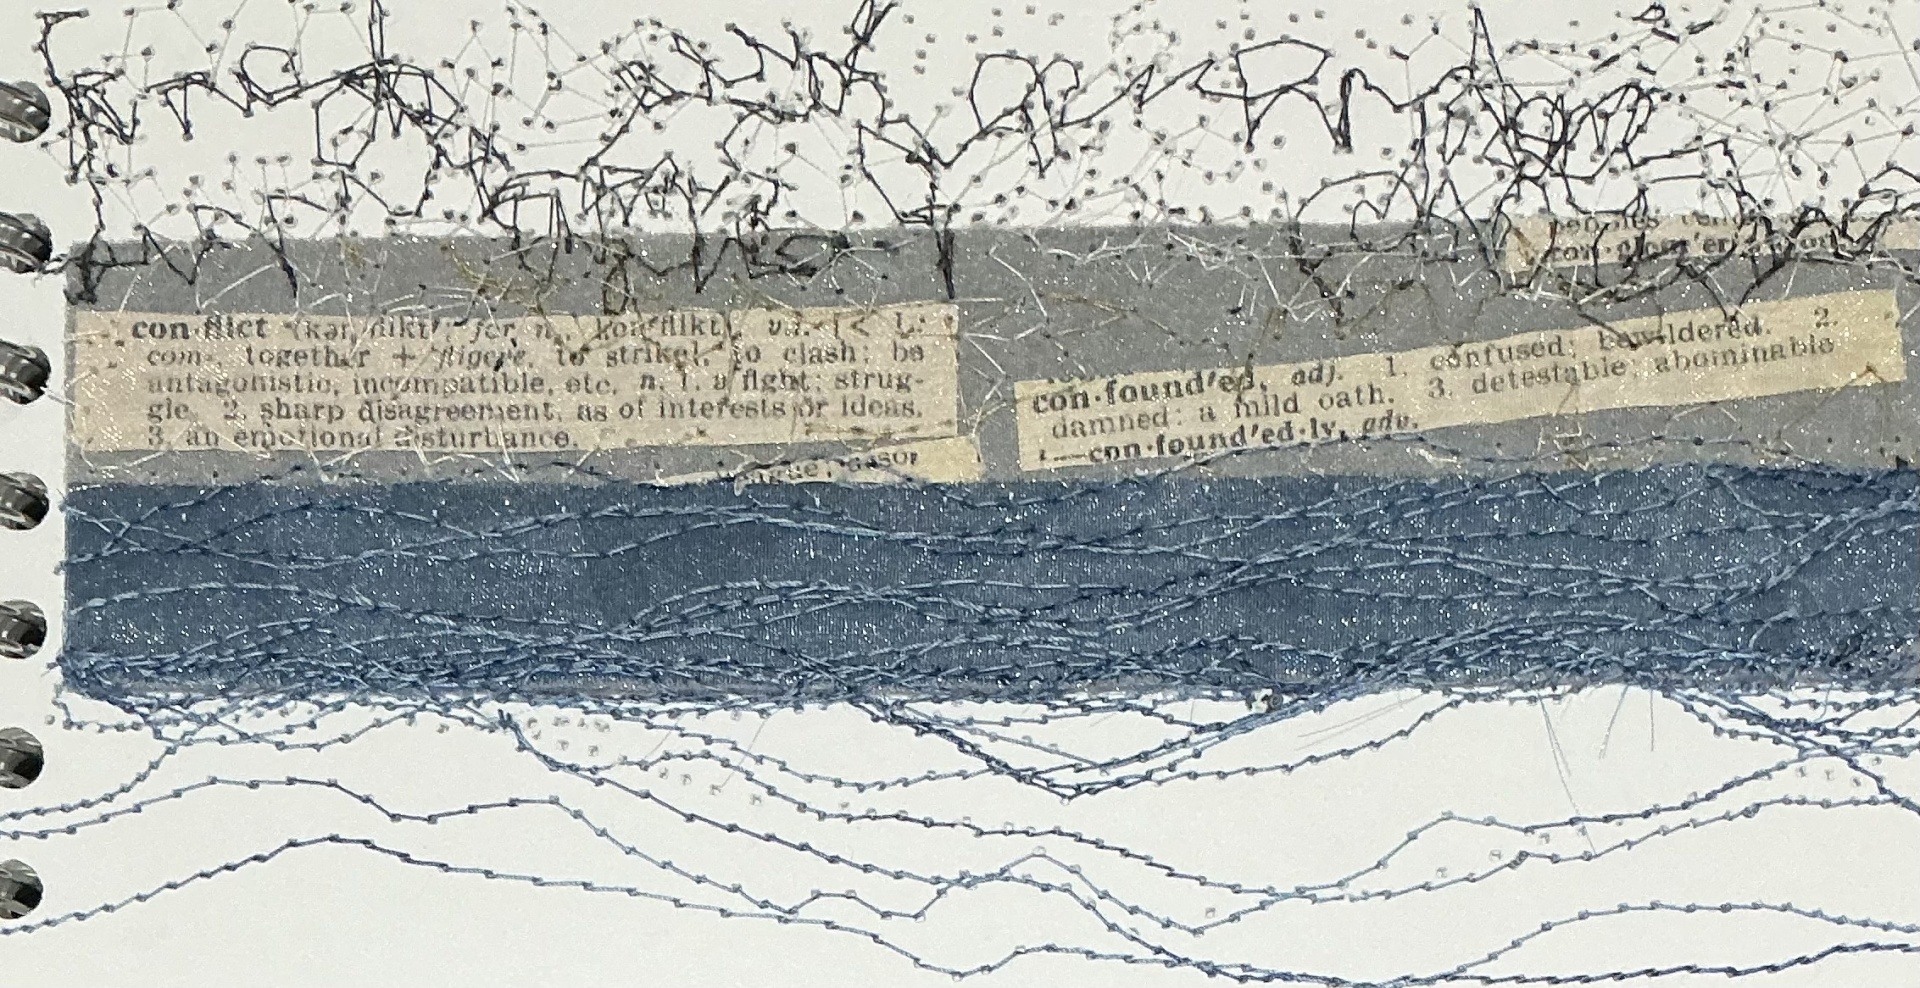 con·flict (kən flikt′; for n., kon′flikt), v.i. [< L.
com-, together + fligere, to strike], to clash; be
antagonistic, incompatible, etc. n. 1. a fight; strug-
gle. 2. sharp disagreement, as of interests or ideas.
3. an emotional disturbance.
con·found′ed, adj. 1. confused; bewildered. 2.
damned: a mild oath. 3. detestable abominable
—con·found′ed·ly, adv.